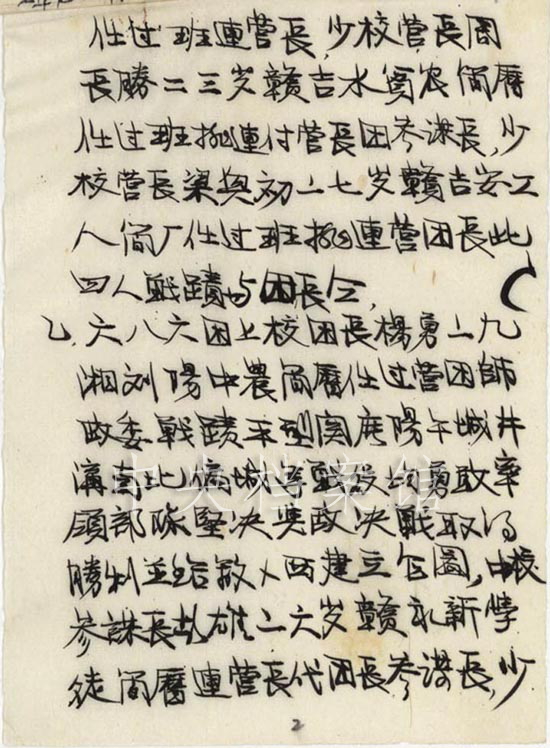 任过班連营長,少校营長周
長勝二三岁贛吉水貧农简曆
任过班排連付营長团参謀長,少
校营長梁興初二七岁贛吉安工
人简厂任过班排連营团長此
四人戰蹟与团長仝,
乙.六八六团上校团長楊勇二九
湘刘陽中農简曆任过营团師
政委戰蹟平型関 陽午城井
溝 城等戰役均勇敢率
領部隊坚决 决戰取得
勝利並给敌人 建立 ,中校
参謀長彭雄二六岁贛永新學
徒简曆連营長代团長参謀長,少
2
中央档案馆